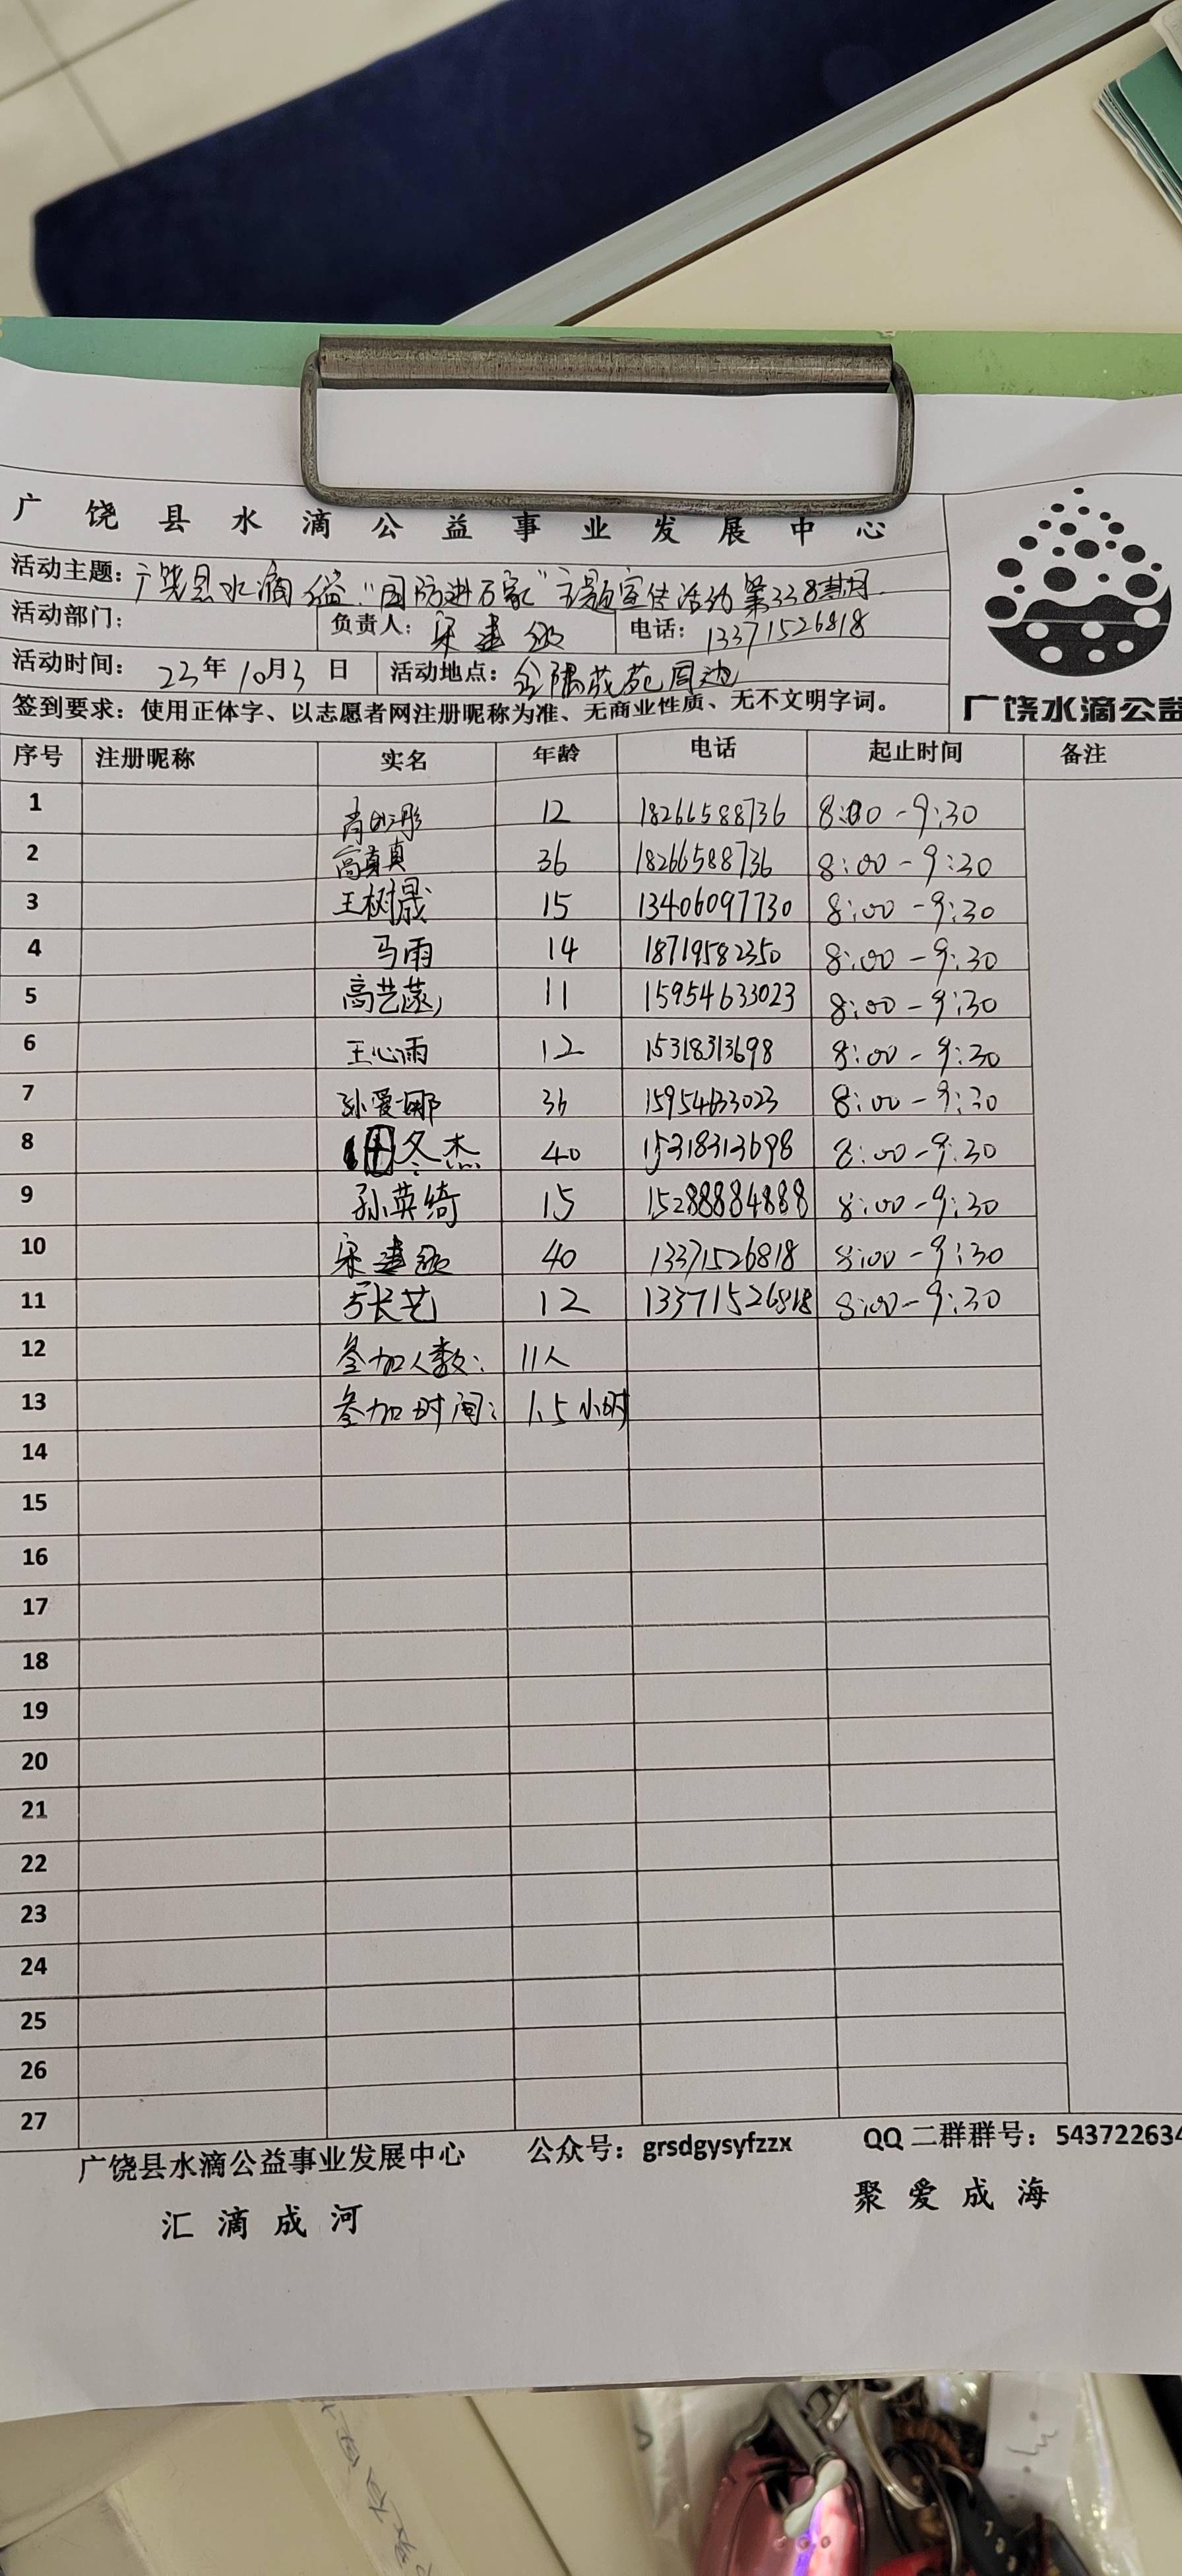 广饶县水滴公益事业发展中心
活动主题：广饶县水滴公益"国防进万家"主题宣传活动第338期
活动部门： 负责人：宋 电话：13371526818
活动时间：23年10月3日 活动地点：金隅花苑周边
签到要求：使用正体字、以志愿者网注册昵称为准、无商业性质、无不文明字词。
广饶水滴公益
序号 注册昵称 实名 年龄 电话 起止时间 备注
1 肖 彤 12 18266588736 8:00-9:30
2 高真真 36 18266588736 8:00-9:30
3 王树晟 15 13406097730 8:00-9:30
4 马雨 14 18719582350 8:00-9:30
5 高艺菡 11 15954633023 8:00-9:30
6 王心雨 12 15318313698 8:00-9:30
7 孙爱娜 36 15954633023 8:00-9:30
8 田冬杰 40 15318313698 8:00-9:30
9 孙英绮 15 15288884888 8:00-9:30
10 宋 40 13371526818 8:00-9:30
11 长艺 12 13371526818 8:00-9:30
12 参加人数：11人
13 参加时间：1.5小时
14
15
16
17
18
19
20
21
22
23
24
25
26
27
广饶县水滴公益事业发展中心 公众号：grsdgysyfzzx QQ二群群号：543722634
汇滴成河 聚爱成海